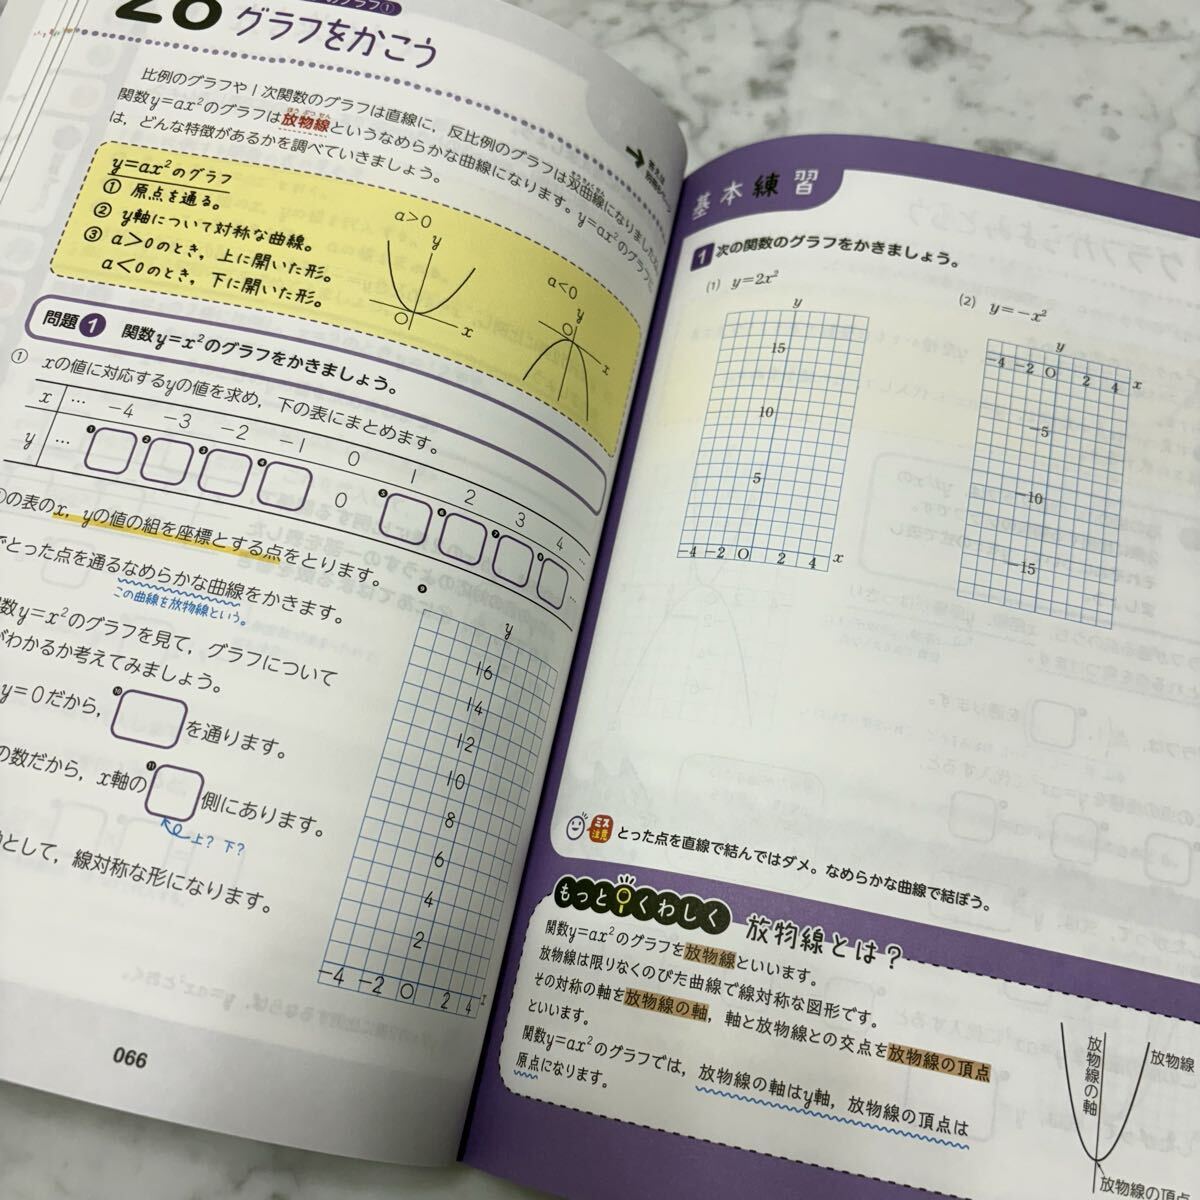 28
グラフをかこう
比例のグラフや1次関数のグラフは直線に，反比例のグラフは双曲線になりましたね。
関数y=ax²のグラフは放物線というなめらかな曲線になります。y=ax²のグラフに
は，どんな特徴があるかを調べていきましょう。
y=ax²のグラフ
① 原点を通る。
② y軸について対称な曲線。
③ a>0のとき，上に開いた形。
a<0のとき，下に開いた形。
a>0
y
O
x
a<0
y
O
x
問題1 関数y=x²のグラフをかきましょう。
① xの値に対応するyの値を求め，下の表にまとめます。
x … −4 −3 −2 −1 0 1 2 3 4 …
y … ❶ ❷ ❸ ❹ 0 ❺ ❻ ❼ ❽ …
の表のx，yの値の組を座標とする点をとります。
でとった点を通るなめらかな曲線をかきます。
この曲線を放物線という。
❾
数y=x²のグラフを見て，グラフについて
がわかるか考えてみましょう。
y=0だから，❿ を通ります。
の数だから，x軸の⓫ 側にあります。
上？下？
として，線対称な形になります。
y
16
14
12
10
8
6
4
2
−4 −2 O 2 4 x
066
基本練習
1 次の関数のグラフをかきましょう。
(1) y=2x²
y
15
10
5
−4 −2 O 2 4 x
(2) y=−x²
y
−4 −2 O 2 4 x
−5
−10
−15
ミス注意 とった点を直線で結んではダメ。なめらかな曲線で結ぼう。
もっとくわしく 放物線とは？
関数y=ax²のグラフを放物線といいます。
放物線は限りなくのびた曲線で線対称な図形です。
その対称の軸を放物線の軸，軸と放物線との交点を放物線の頂点
といいます。
関数y=ax²のグラフでは，放物線の軸はy軸，放物線の頂点は
原点になります。
放物線の軸
放物線
放物線の頂点